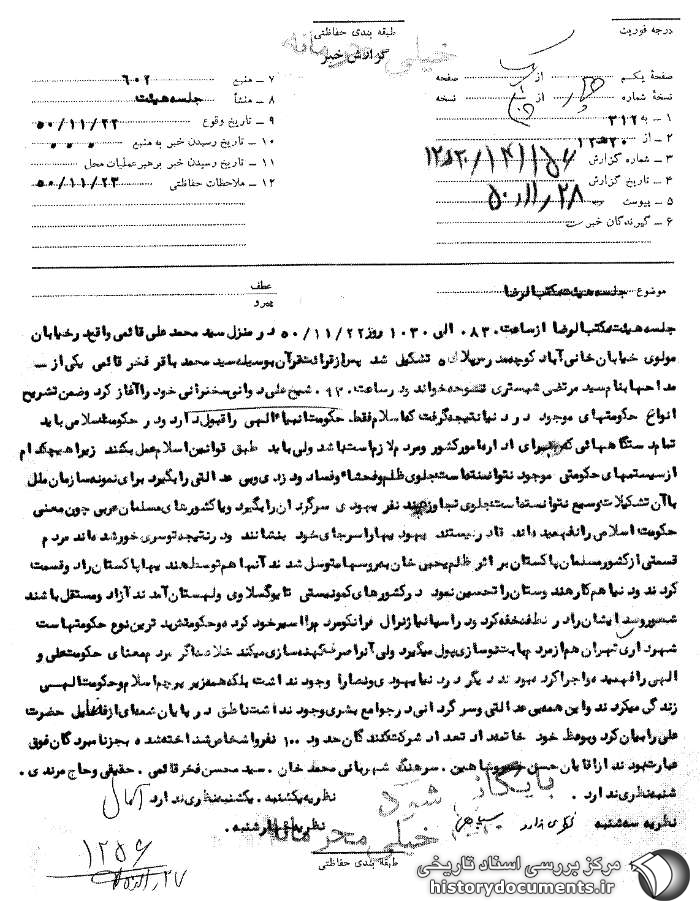 درجه فوریت
طبقه بندی حفاظتی
خیلی محرمانه
گزارش خبر
صفحهٔ یکم از صفحه
نسخهٔ شماره از نسخه
۱ - به ۳۱۲
۲ - از
۳ - شماره گزارش
۴ - تاریخ گزارش
۵ - پیوست
۶ - گیرندگان خبر
۷ - منبع ۶۰۲
۸ - منشأ جلسه هیئت
۹ - تاریخ وقوع ۵۰/۱۱/۲۲
۱۰ - تاریخ رسیدن خبر به منبع
۱۱ - تاریخ رسیدن خبر برهبر عملیات محل
۱۲ - ملاحظات حفاظتی ۵۰/۱۱/۲۳
موضوع جلسه هیئت مکتب الرضا
عطف
پیرو
جلسه هیئت مکتب الرضا از ساعت ۰۸۳۰ الی ۱۰۳۰ روز ۵۰/۱۱/۲۲ در منزل سید محمد علی قائمی واقع در خیابان
مولوی خیابان خانی آباد کوچه مدرس پلاک ۵ تشکیل شد پس از قرائت قرآن بوسیله سید محمد باقر فخر قائمی یکی از
مداحها بنام سید مرتضی شبستری نوحه خواند و در ساعت ۰۹۳۰ شیخ علی دوانی سخنرانی خود را آغاز کرد و ضمن تشریح
انواع حکومتهای موجود در دنیا نتیجه گرفت که اسلام فقط حکومت انبیاء الهی را قبول دارد و در حکومت اسلامی باید
تمام دستگاههائی که برای اداره امور کشور و مردم لازم است باشد ولی باید طبق قوانین اسلام عمل بکنند زیرا هیچکدام
از سیستمهای حکومتی موجود نتوانسته است جلوی ظلم و فحشاء و فساد و دزدی و بی عدالتی را بگیرد برای نمونه سازمان ملل
با آن تشکیلات وسیع نتوانسته است جلوی تجاوز چند نفر یهودی سرگردان را بگیرد و یا کشورهای مسلمان عربی چون معنی
حکومت اسلامی را نفهمیده اند قادر نیستند یهودیها را سر جای خود بنشانند و در نتیجه توسری خور شده اند مردم
قسمتی از کشور مسلمان پاکستان بر اثر ظلم یحیی خان به روسها متوسل شدند آنها هم توسط هندیها پاکستان را دو قسمت
کردند و دنیا هم کار هندوستان را تحسین نمود در کشورهای کمونیستی تا یوگسلاوی و لهستان آمدند آزاد و مستقل باشند
شوروی صدایشان را در نطفه خفه کرد و در اسپانیا ژنرال فرانکو مردم را اسیر خود کرده و حکومتش بدترین نوع حکومتهاست
شهرداری تهران هم از مردم بابت نوسازی پول میگیرد ولی آنرا صرف کهنه سازی میکند خلاصه اگر مردم معنای حکومت علی و
الهی را فهمیده و اجرا کرده بودند دیگر در دنیا یهودی و نصارا وجود نداشت بلکه همه زیر پرچم اسلام و حکومت الهی
زندگی میکردند و این همه بی عدالتی و سرگردانی در جوامع بشری وجود نداشت ناطق در پایان شمه ای از فضایل حضرت
علی را بیان کرد و بوعظ خود خاتمه داد تعداد شرکت کنندگان حدود ۱۰۰ نفر و اشخاص شناخته شده بجز نامبردگان فوق
عبارت بودند از آقایان حسن شاهین . سرهنگ شهربانی محمد خان . سید محسن فخر قائمی . حقیقی و حاج مرندی .
شنبه نظری ندارد . نظریه یکشنبه . یکشنبه نظری ندارد
نظریه سه شنبه نظری ندارد نظریه چهارشنبه .
بایگانی شود
خیلی محرمانه
طبقه بندی حفاظتی
۱۲۵۶
مرکز بررسی اسناد تاریخی
historydocuments.ir